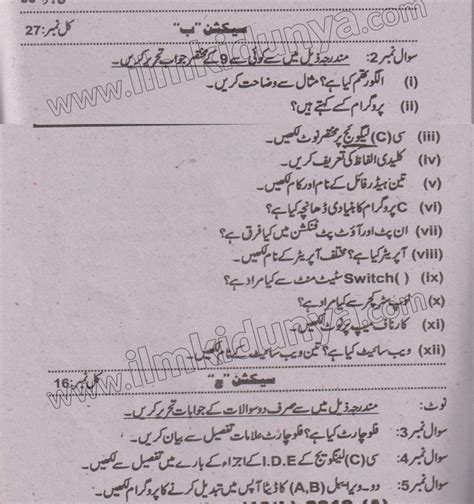 سیکشن "ب" کل نمبر:27
سوال نمبر2: مندرجہ ذیل میں سے کوئی سے 9 کے مختصر جواب تحریر کریں۔
(i) الگورتھم کیا ہے؟ مثال سے وضاحت کریں۔
(ii) پروگرام کسے کہتے ہیں؟
(iii) سی (C) لینگویج پر مختصر نوٹ لکھیں۔
(iv) کلیدی الفاظ کی تعریف کریں۔
(v) تین ہیڈر فائل کے نام اور کام لکھیں۔
(vi) C پروگرام کا بنیادی ڈھانچہ کیا ہے؟
(vii) ان پٹ اور آؤٹ پٹ فنکشن میں کیا فرق ہے؟
(viii) آپریٹر کیا ہے؟ مختلف آپریٹر کے نام لکھیں۔
(ix) Switch( ) سٹیٹ منٹ سے کیا مراد ہے؟
(x) لوپ سٹرکچر سے کیا مراد ہے؟
(xi) کارناف میپ پر نوٹ لکھیں۔
(xii) ویب سائیٹ کیا ہے؟ تین ویب سائیٹ کے نام لکھیں۔
سیکشن "ج" کل نمبر:16
نوٹ: مندرجہ ذیل میں سے صرف دو سوالات کے جوابات تحریر کریں۔
سوال نمبر3: فلوچارٹ کیا ہے؟ فلوچارٹ علامات تفصیل سے بیان کریں۔
سوال نمبر4: سی (C) لینگویج کے I.D.E کے اجزاء کے بارے میں تفصیل سے لکھیں۔
سوال نمبر5: دو ویری ایبل (A,B) کا ڈیٹا آپس میں تبدیل کرنے کا پروگرام لکھیں۔
www.ilmkidunya.com
www.ilmkidunya.com
www.ilmkidunya.com